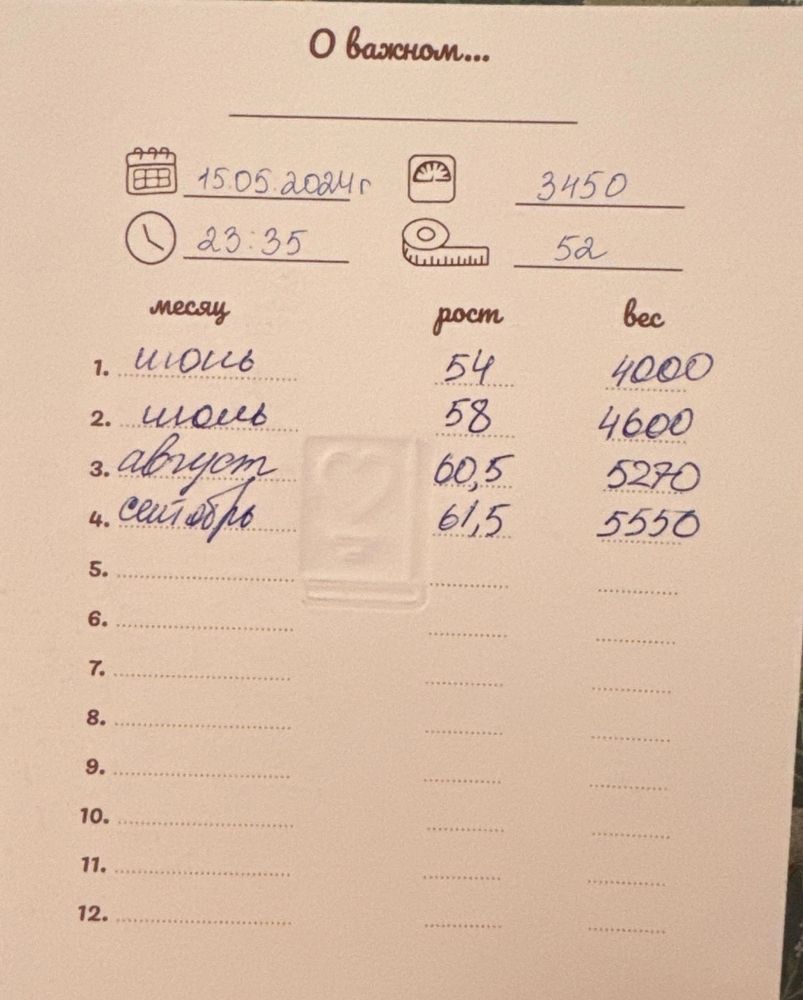 О важном...
15.05.2024г 3450
23:35 52
месяц рост вес
1. июнь 54 4000
2. июль 58 4600
3. август 60,5 5270
4. сентябрь 61,5 5550
5.
6.
7.
8.
9.
10.
11.
12.